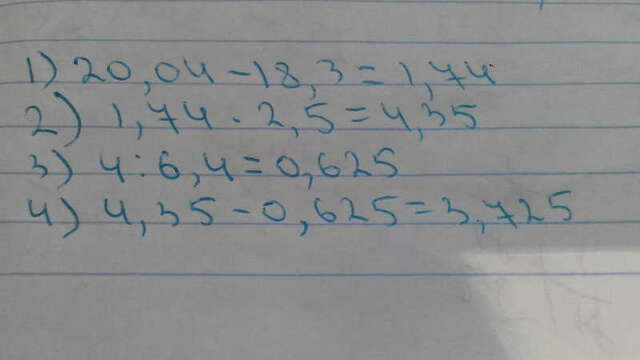 1) 20,04 - 18,3 = 1,74
2) 1,74 · 2,5 = 4,35
3) 4 : 6,4 = 0,625
4) 4,35 - 0,625 = 3,725